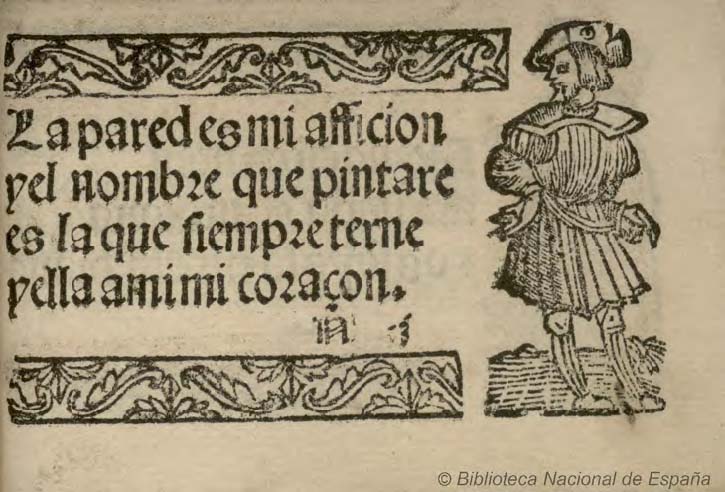 La pared es mi afficion
y el nombre que pintare
es la que siempre terne
y ella a mi mi coraçon.
© Biblioteca Nacional de España